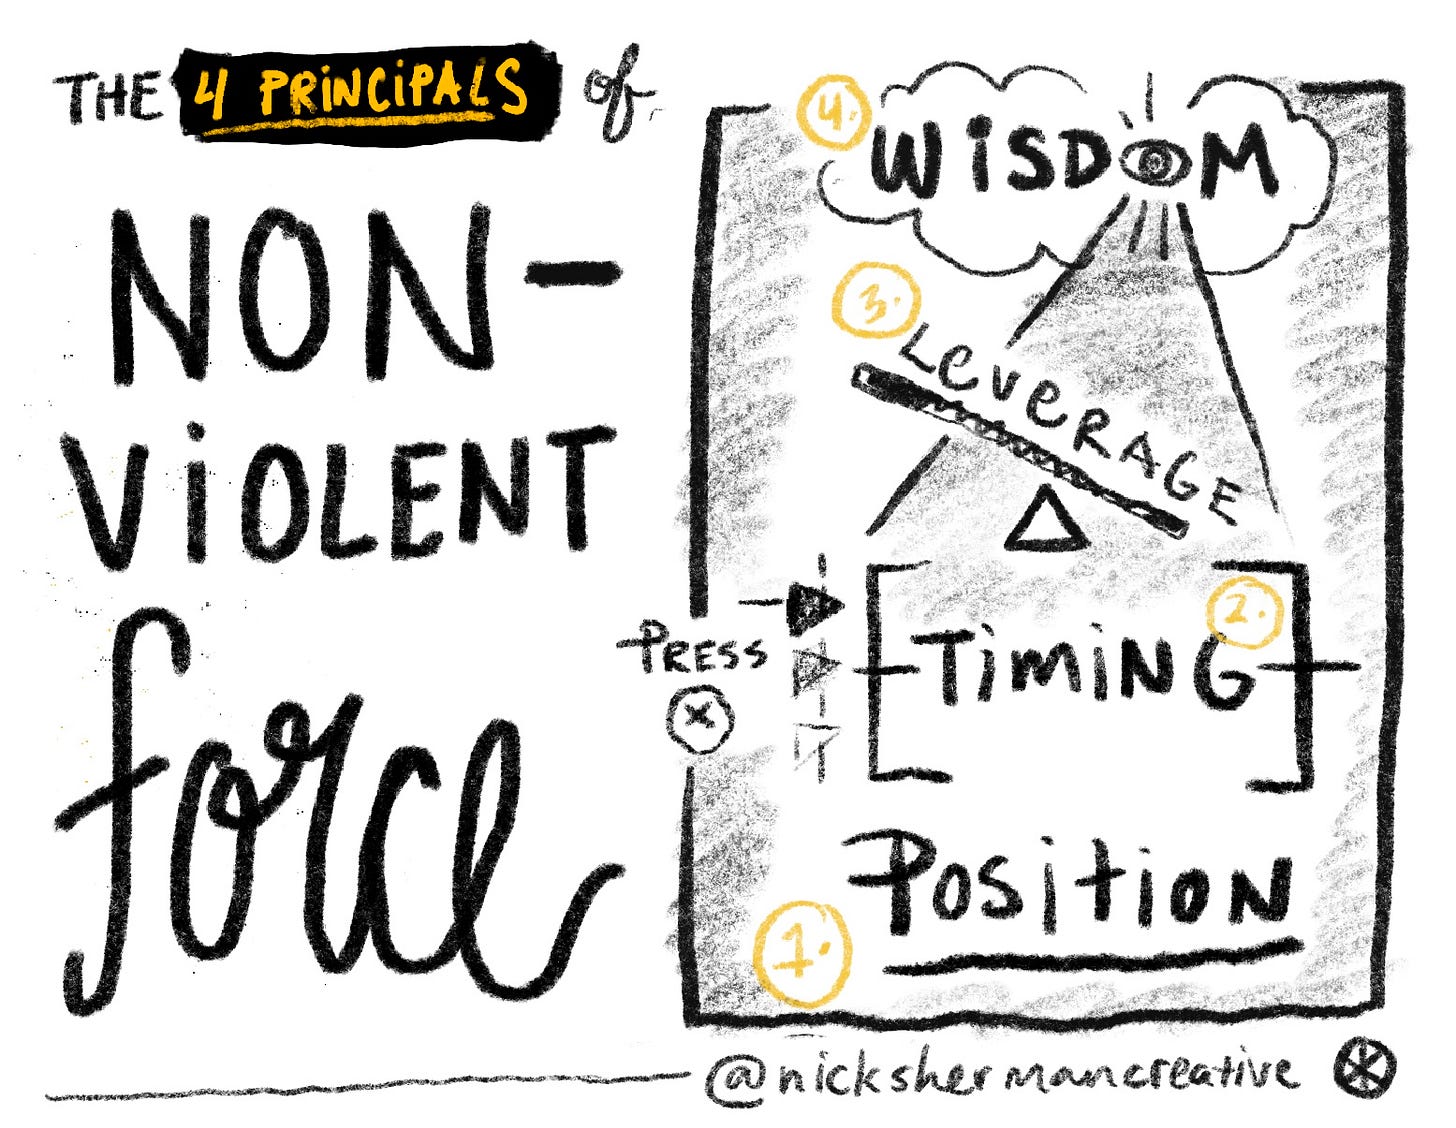 THE 4 PRiNCiPALS of
NON-
ViOLENT
force
4. WiSDOM
3. LeveRAGE
2. TiMiNG
PRESS
X
PositioN
1.
@nickshermancreative